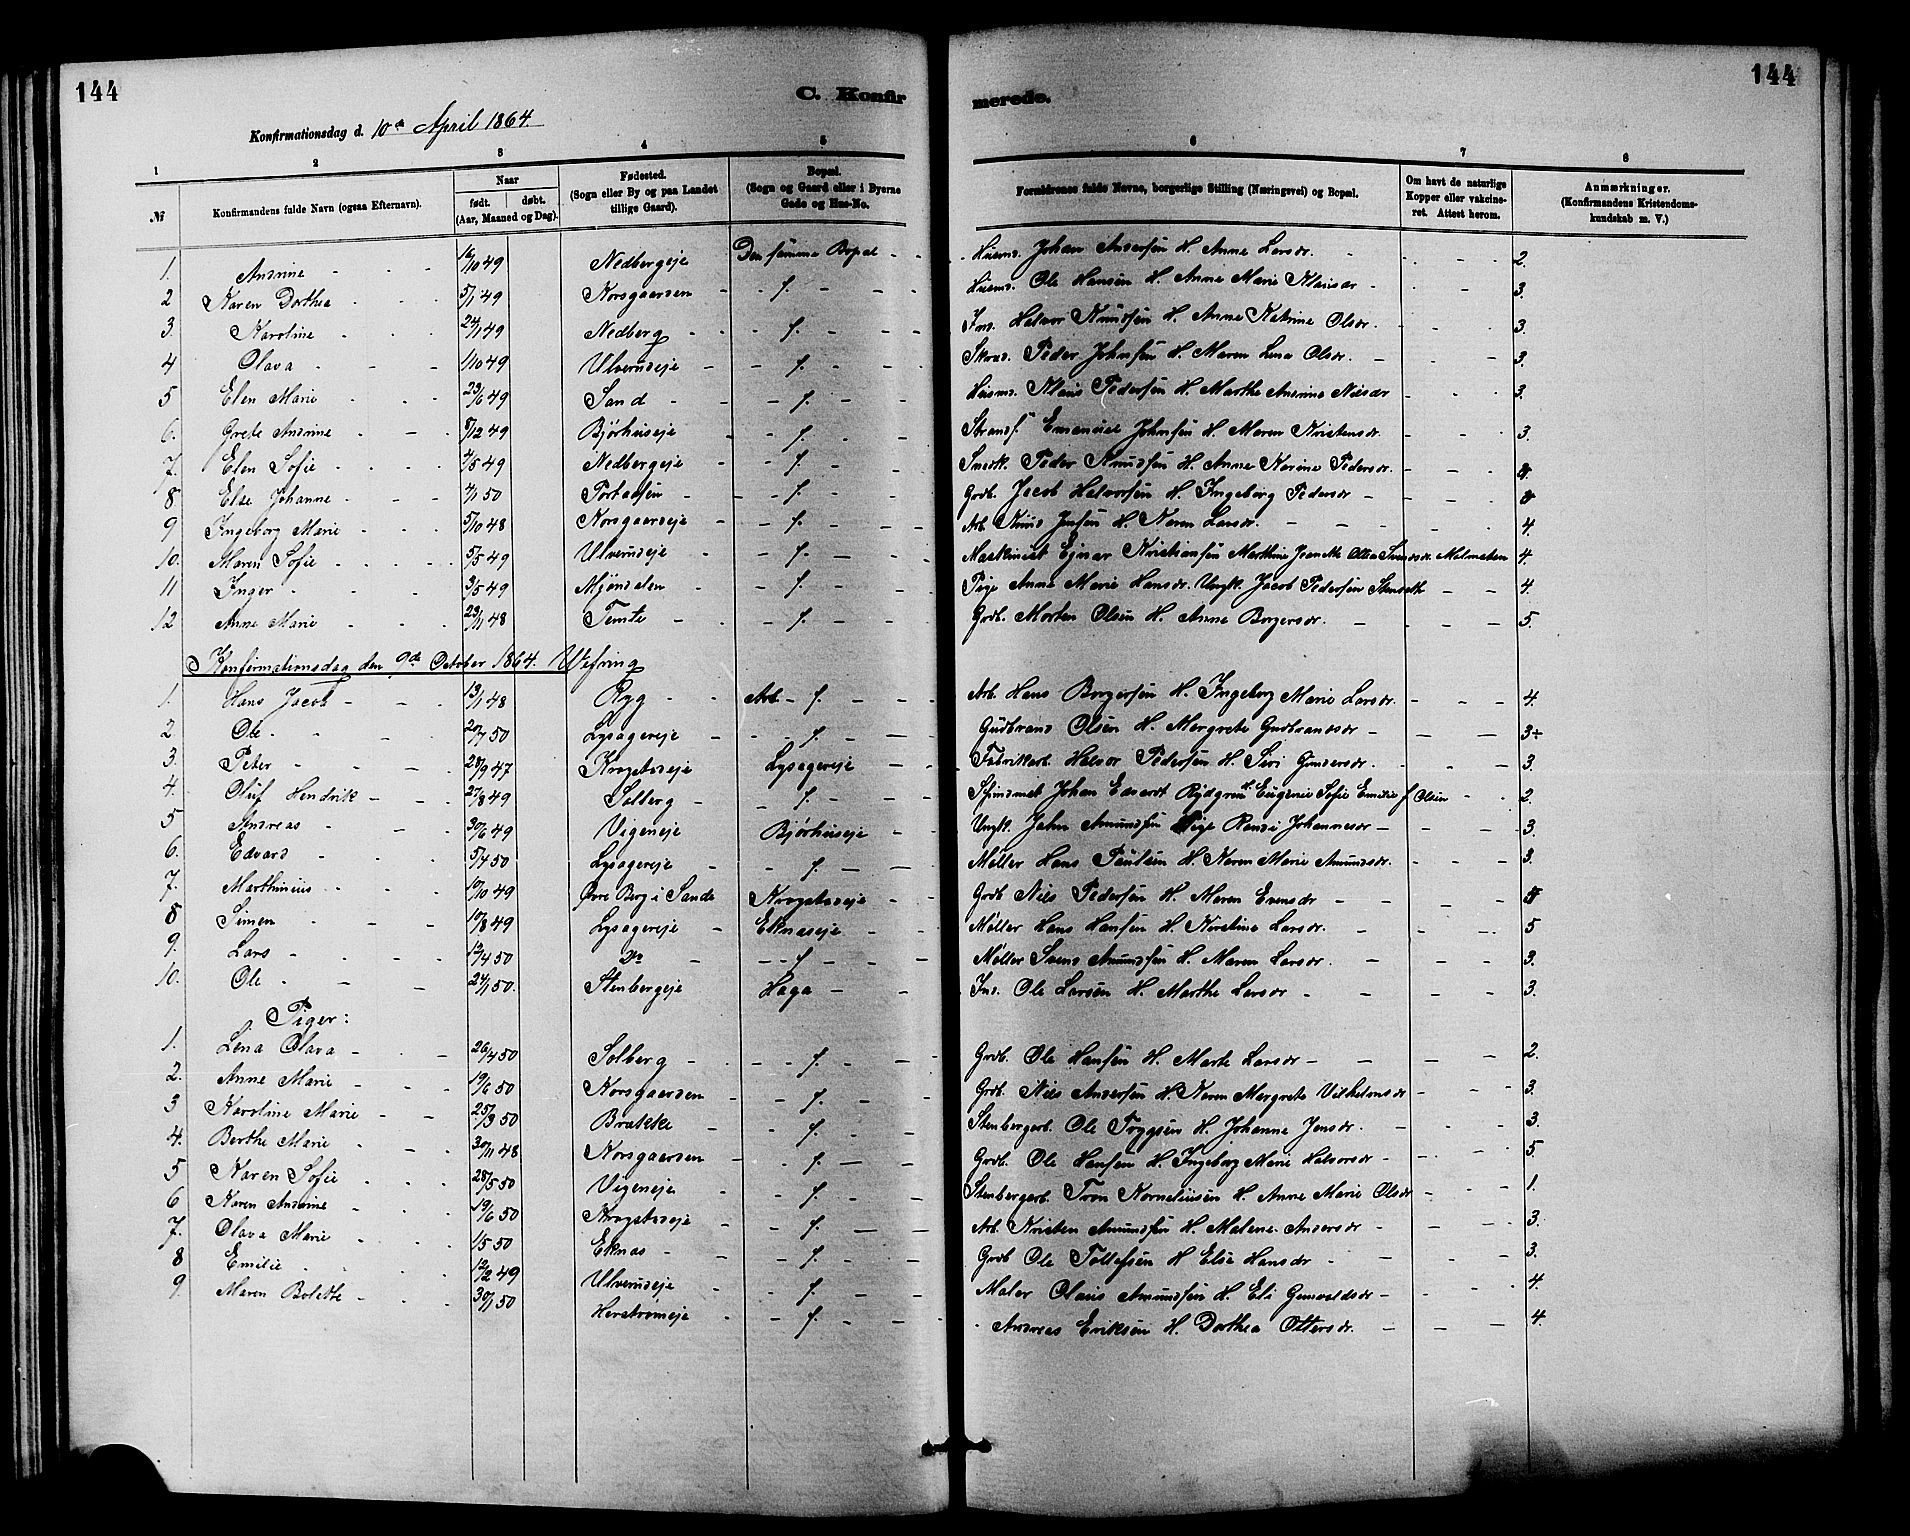 144
C. Konfir
merede.
144
Konfirmationsdag d. 10de April 1864.
1 2 3 4 5 6 7 8
№ Konfirmandens fulde Navn (ogsaa Efternavn). Naar født. døbt. (Aar, Maaned og Dag). Fødested. (Sogn eller By og paa Landet tillige Gaard). Bopæl. (Sogn og Gaard eller i Byerne Gade og Hus-No. Forældrenes fulde Navne, borgerlige Stilling (Næringsvei) og Bopæl. Om havt de naturlige Kopper eller vakcineret. Attest herom. Anmærkninger. (Konfirmandens Kristendomskundskab m. V.)
1. Andrine 16/10 49 Nedbergeje Den samme Bopæl Husmd. Johan Andersen H. Anne Larsdr. 2.
2 Karen Dorthea 5/1 49 Korsgaarden f. Husmd. Ole Hansen H. Anne Marie Klausdr 3.
3. Karoline 24/1 49 Nedberg f. Ind. Halvor Knudsen H. Anne Katrine Olsdr. 3.
4 Olava 1/10 49 Ulverudeje f. Skræd. Peder Johnsen H. Maren Lena Olsdr. 3.
5 Elen Marie 23/6 49 Sand f. Husmd. Klaus Pedersen H. Marthe Andrine Nielsdr 3.
6. Grete Andrine 8/12 49 Bjørhuseje f. Strands. Emanuel Johnsen H. Maren Kristensdr. 3.
7. Elen Sofie 4/5 49 Nedbergeje f. Snedk. Peder Knudsen H. Anne Karine Pedersdr. 4
8 Else Johanne 4/1 50 Portaasen f. Grdb. Jacob Halvorsen H. Ingeborg Pedersdr
9 Ingeborg Marie 5/10 48 Korsgaardeje f. Arb. Knud Jensen H. Karen Larsdr. 4.
10. Maren Sofie 5/5 49 Ulverudeje f. Maskinist Ejnar Kristiansen Marthine Jeanette Olsa Svendsdr. Malmsten 4.
11 Inger 3/5 49 Mjøndalen f. Pige Anne Marie Hansdr. Ungk. Jacob Pedersen Stenseth 4.
12 Anne Marie 23/11 48 Temte f. Grdb. Morten Olsen H. Anne Borgersdr. 5.
Konfirmationsdag den 9de October 1864. Wefring
1. Hans Jacob 13/1 48 Ryg f. Arb. Hans Borgersen H. Ingeborg Marie Larsdr. 4.
2 Ole 20/7 50 Lysagereje f. Gudbrand Olsen H. Mergrete Gudbrandsdr 3÷
3. Peter 28/9 47 Krogstadeje Lysagereje Fabrikarb. Halvor Pedersen H. Siri Gundersdr. 3.
4. Oluf Hendrik 27/8 49 Solberg f. Spindmst Johan Edvardt Rydgren H. Eugenie Sofie Emilie f Olsen 2.
5 Andreas 30/6 49 Vigeneje Bjørhuseje Ungk. John Amundsen Pige Randi Johannesdr 3.
6. Edvard 5/4 50 Lysagereje f. Møller Hans Paulsen H. Karen Marie Amundsdr. 3.
7. Marthinius 10/10 49 Øvre Berg i Sande Krogstadeje Grdb. Nils Pedersen H. Maren Evensdr
8 Simen 10/8 49 Lysagereje Eknaseje Møller Hans Hansen H. Kirstine Larsdr. 5
9. Lars 12/4 50 do f. Møller Svend Amundsen H. Maren Larsdr. 3.
10. Ole 24/1 50. Stenbergeje Haga Ind. Ole Larsen H. Marthe Larsdr 3.
Piger:
1. Lena Olava 26/4 50 Solberg f. Grdb. Ole Hansen H. Marte Larsdr 2.
2. Anne Marie 19/6 50 Korsgaarden f. Grdb. Nils Andersen H. Karen Mergrete Vilhelmsdr 3.
3 Karoline Marie 25/3 50 Brække f. Stenbergarb. Ole Tryggsen H. Johanne Jensdr. 3.
4. Berthe Marie 30/11 48 Korsgaarden f. Grdb. Ole Hansen H. Ingeborg Marie Halvorsdr 5.
5 Karen Sofie 28/5 50 Vigeneje f. Stenbergarb. Tron Korneliusen H. Anne Marie Olsdr 1.
6 Karen Andrine 19/6 50 Krogstadeje f. Arb. Kristen Amundsen H. Malene Andersdr 3.
7. Olava Marie 1/5 50 Eknas f. Grdb. Ole Tollefsen H Else Hansdr 3.
8 Emilie 12/2 49 Ulverudeje f. Maler Olaus Amundsen H. Eli Gunvaldsdr 4.
9. Maren Bolette 30/1 50 Herstrømeje f. Andreas Eriksen H. Dorthea Ottersdr. 4.